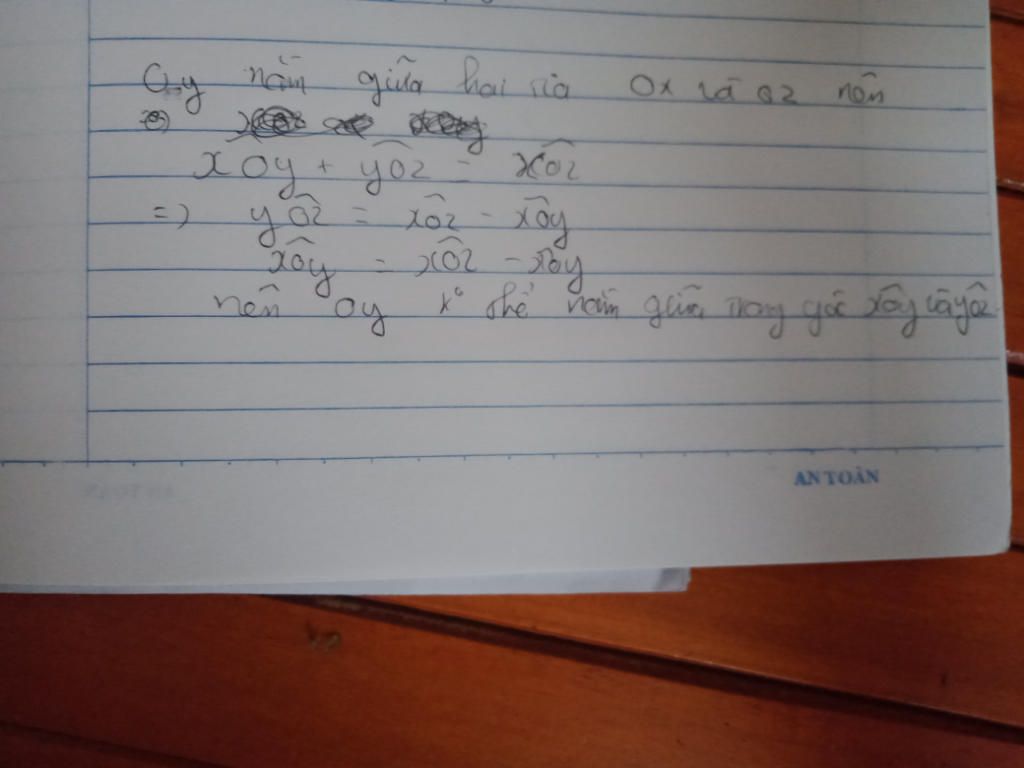 Oy nằm giữa hai tia Ox và Oz nên
xOy + yOz = xOz
=> yOz = xOz - xOy
xOy = xOz - xOy
nên Oy k° thể nằm giữa trong góc xOy và yOz
AN TOÀN